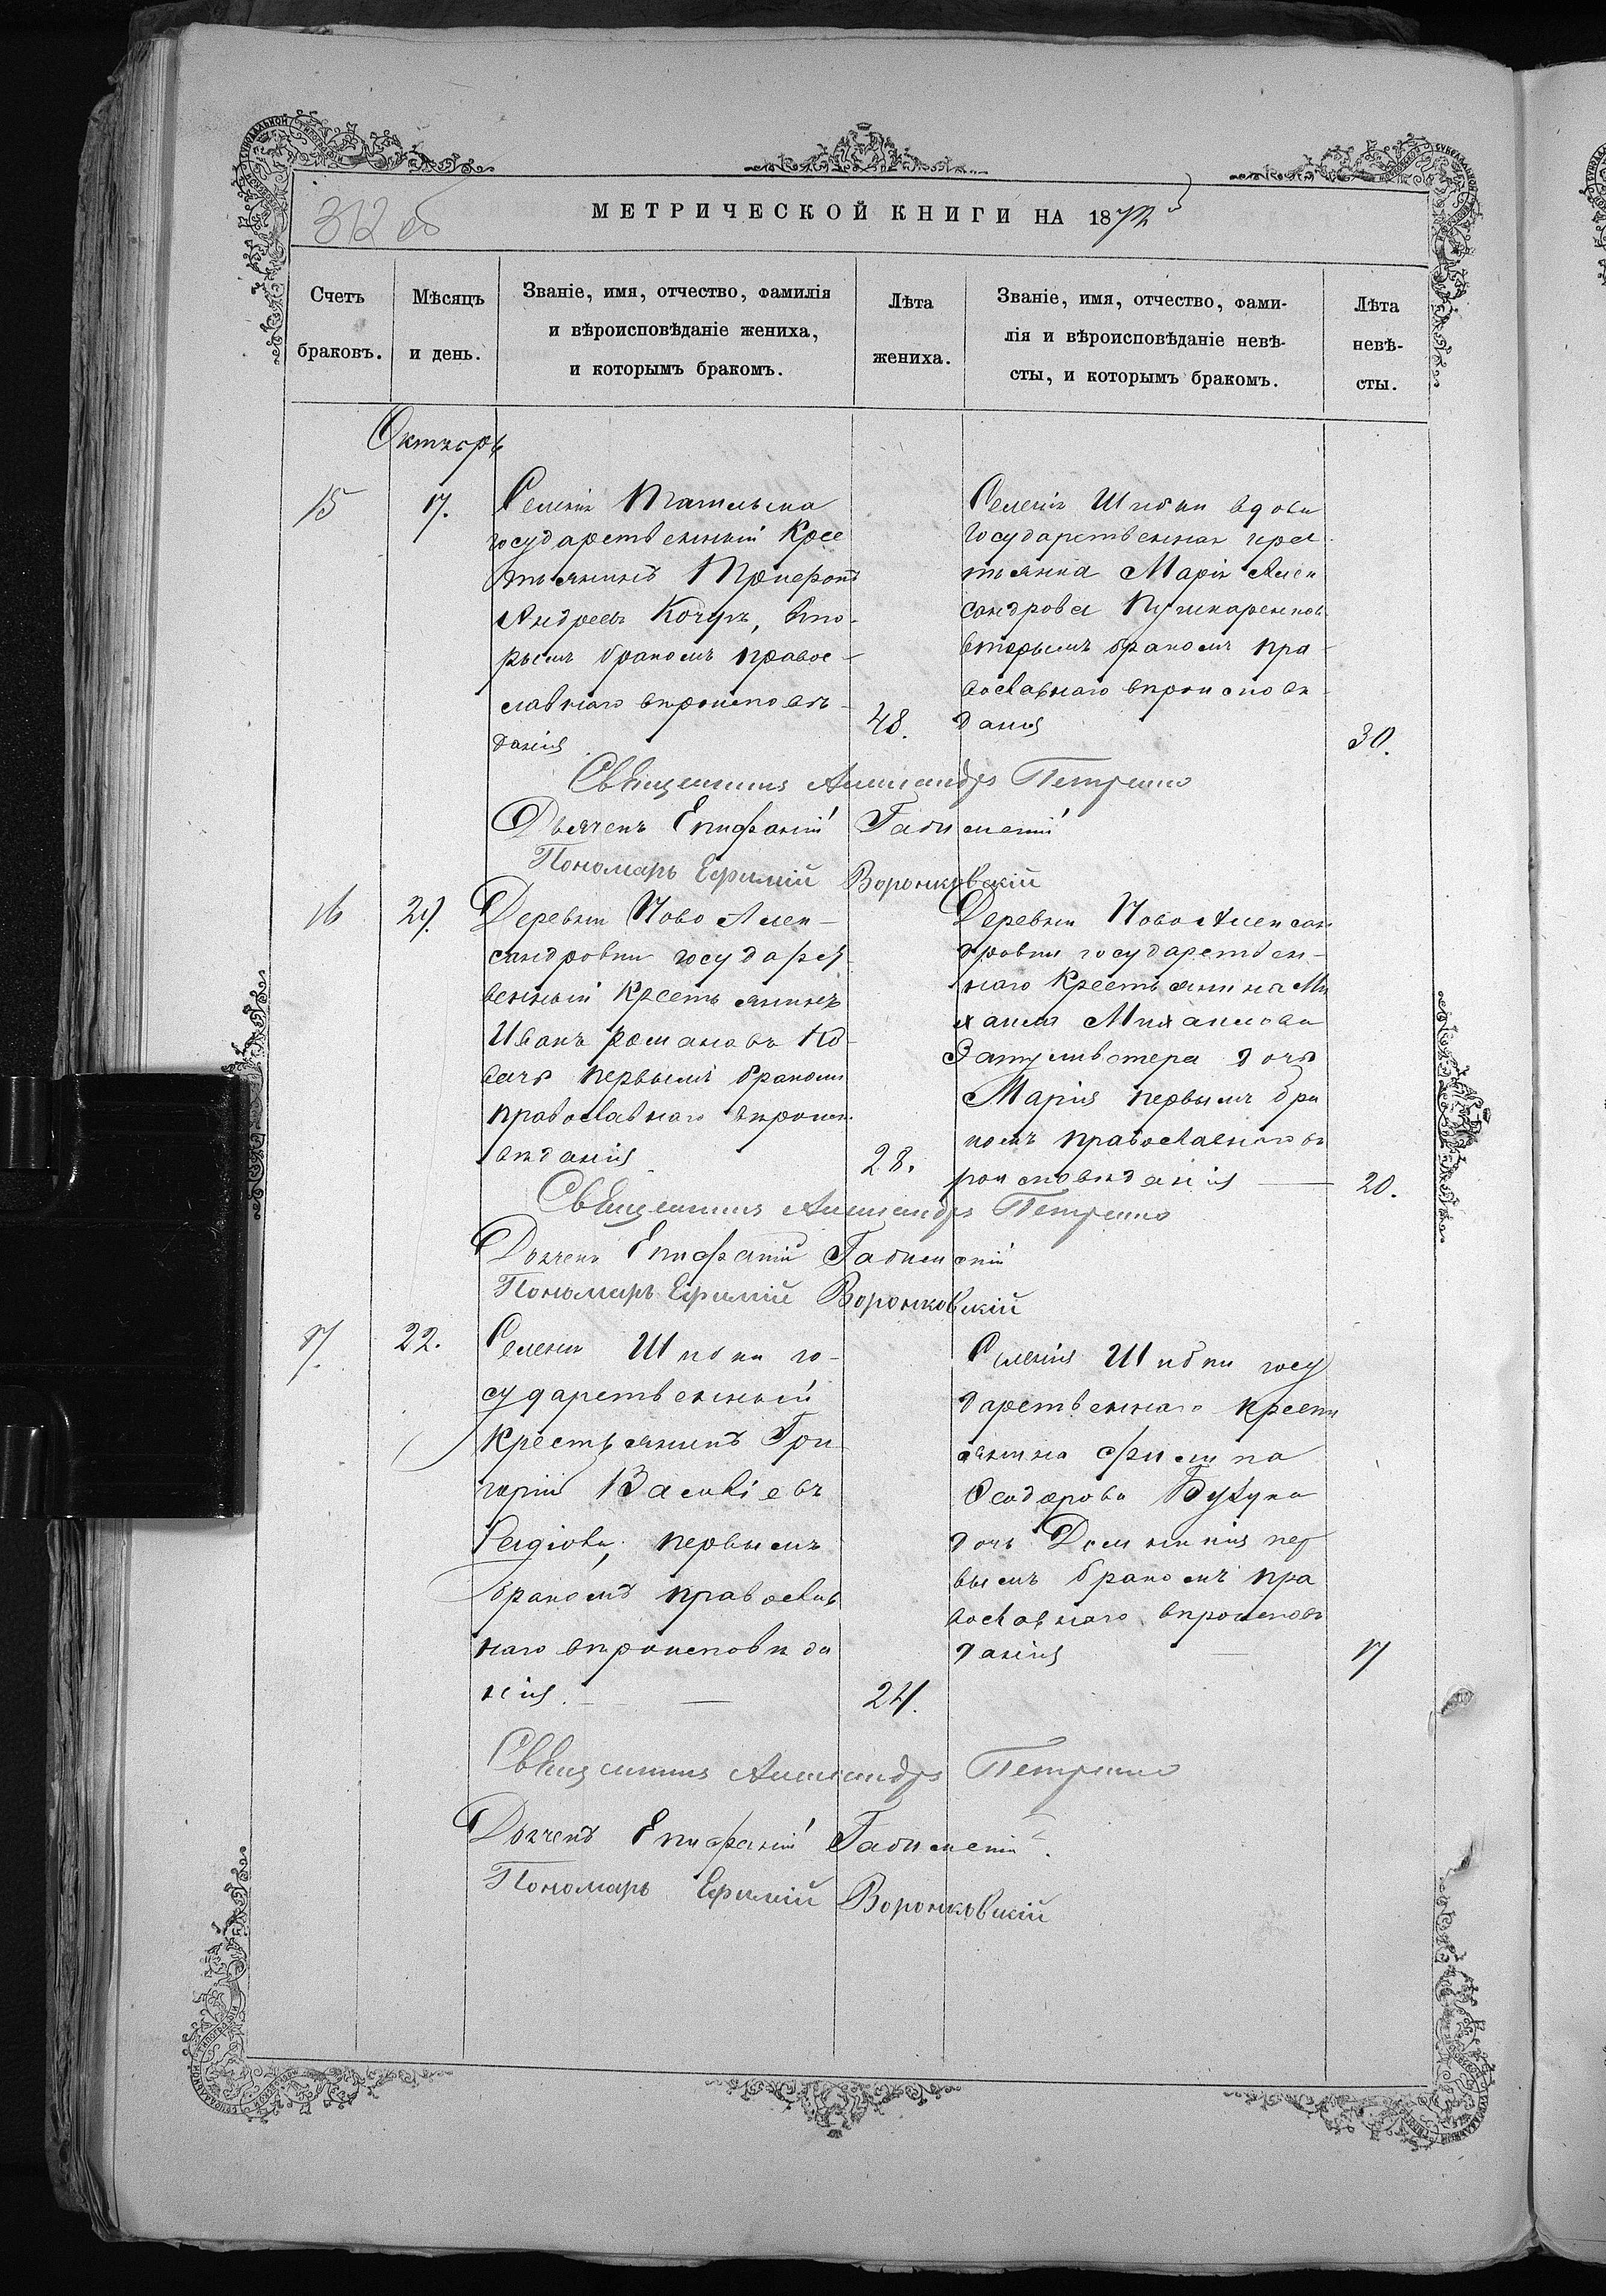 312 об
МЕТРИЧЕСКОЙ КНИГИ НА 1872
Счетъ браковъ.
Мѣсяцъ и день.
Званіе, имя, отчество, фамилія
и вѣроисповѣданіе жениха,
и которымъ бракомъ.
Лѣта
жениха.
Званіе, имя, отчество, фами-
лія и вѣроисповѣданіе невѣ-
сты, и которымъ бракомъ.
Лѣта
невѣ-
сты.
Октябрь
15
17.
Селенія
государственный Кре
стьянинъ
Андреевъ Кочуръ, вто-
рымъ бракомъ правос-
славнаго вѣроисповѣ-
данія
48.
Селенія Шибки вдова
государственная крес
тьянка Марія Алек
сандрова Пушкаренкова
вторымъ бракомъ пра-
вославнаго вѣроисповѣ-
данія
30.
Священникъ Александръ Петренко
Дьячекъ Епифаній
Пономарь Ефимій Воронковскій
16
Деревни Ново Алек-
сандровки государст
венный Крестьянинъ
Иванъ Романовъ Ко-
вачъ первымъ бракомъ
православнаго вѣроис
вѣданія
28.
Деревни Ново Алексан
дровки государствен-
наго Крестьянина Ми
хаила Михаилова
дочь
Марія первымъ бра
комъ православнаго вѣ
роисповѣданія
20.
Священникъ Александръ Петренко
Дьячекъ Епифаній
Пономарь Ефимій Воронковскій
17.
22.
Селенія Шибки го-
сударственный
крестьянинъ Гри
горій Василіевъ
первымъ
бракомъ православ
наго вѣроисповѣда
нія.
24.
Селенія Шибки госу
дарственнаго крестья
янина Филипа
Феодорова
дочь Домникія пер
вымъ бракомъ пра
вославнаго вѣроисповѣ
данія
17
Священникъ Александръ Петренко
Дьячекъ Епифаній
Пономарь Ефимій Воронковскій